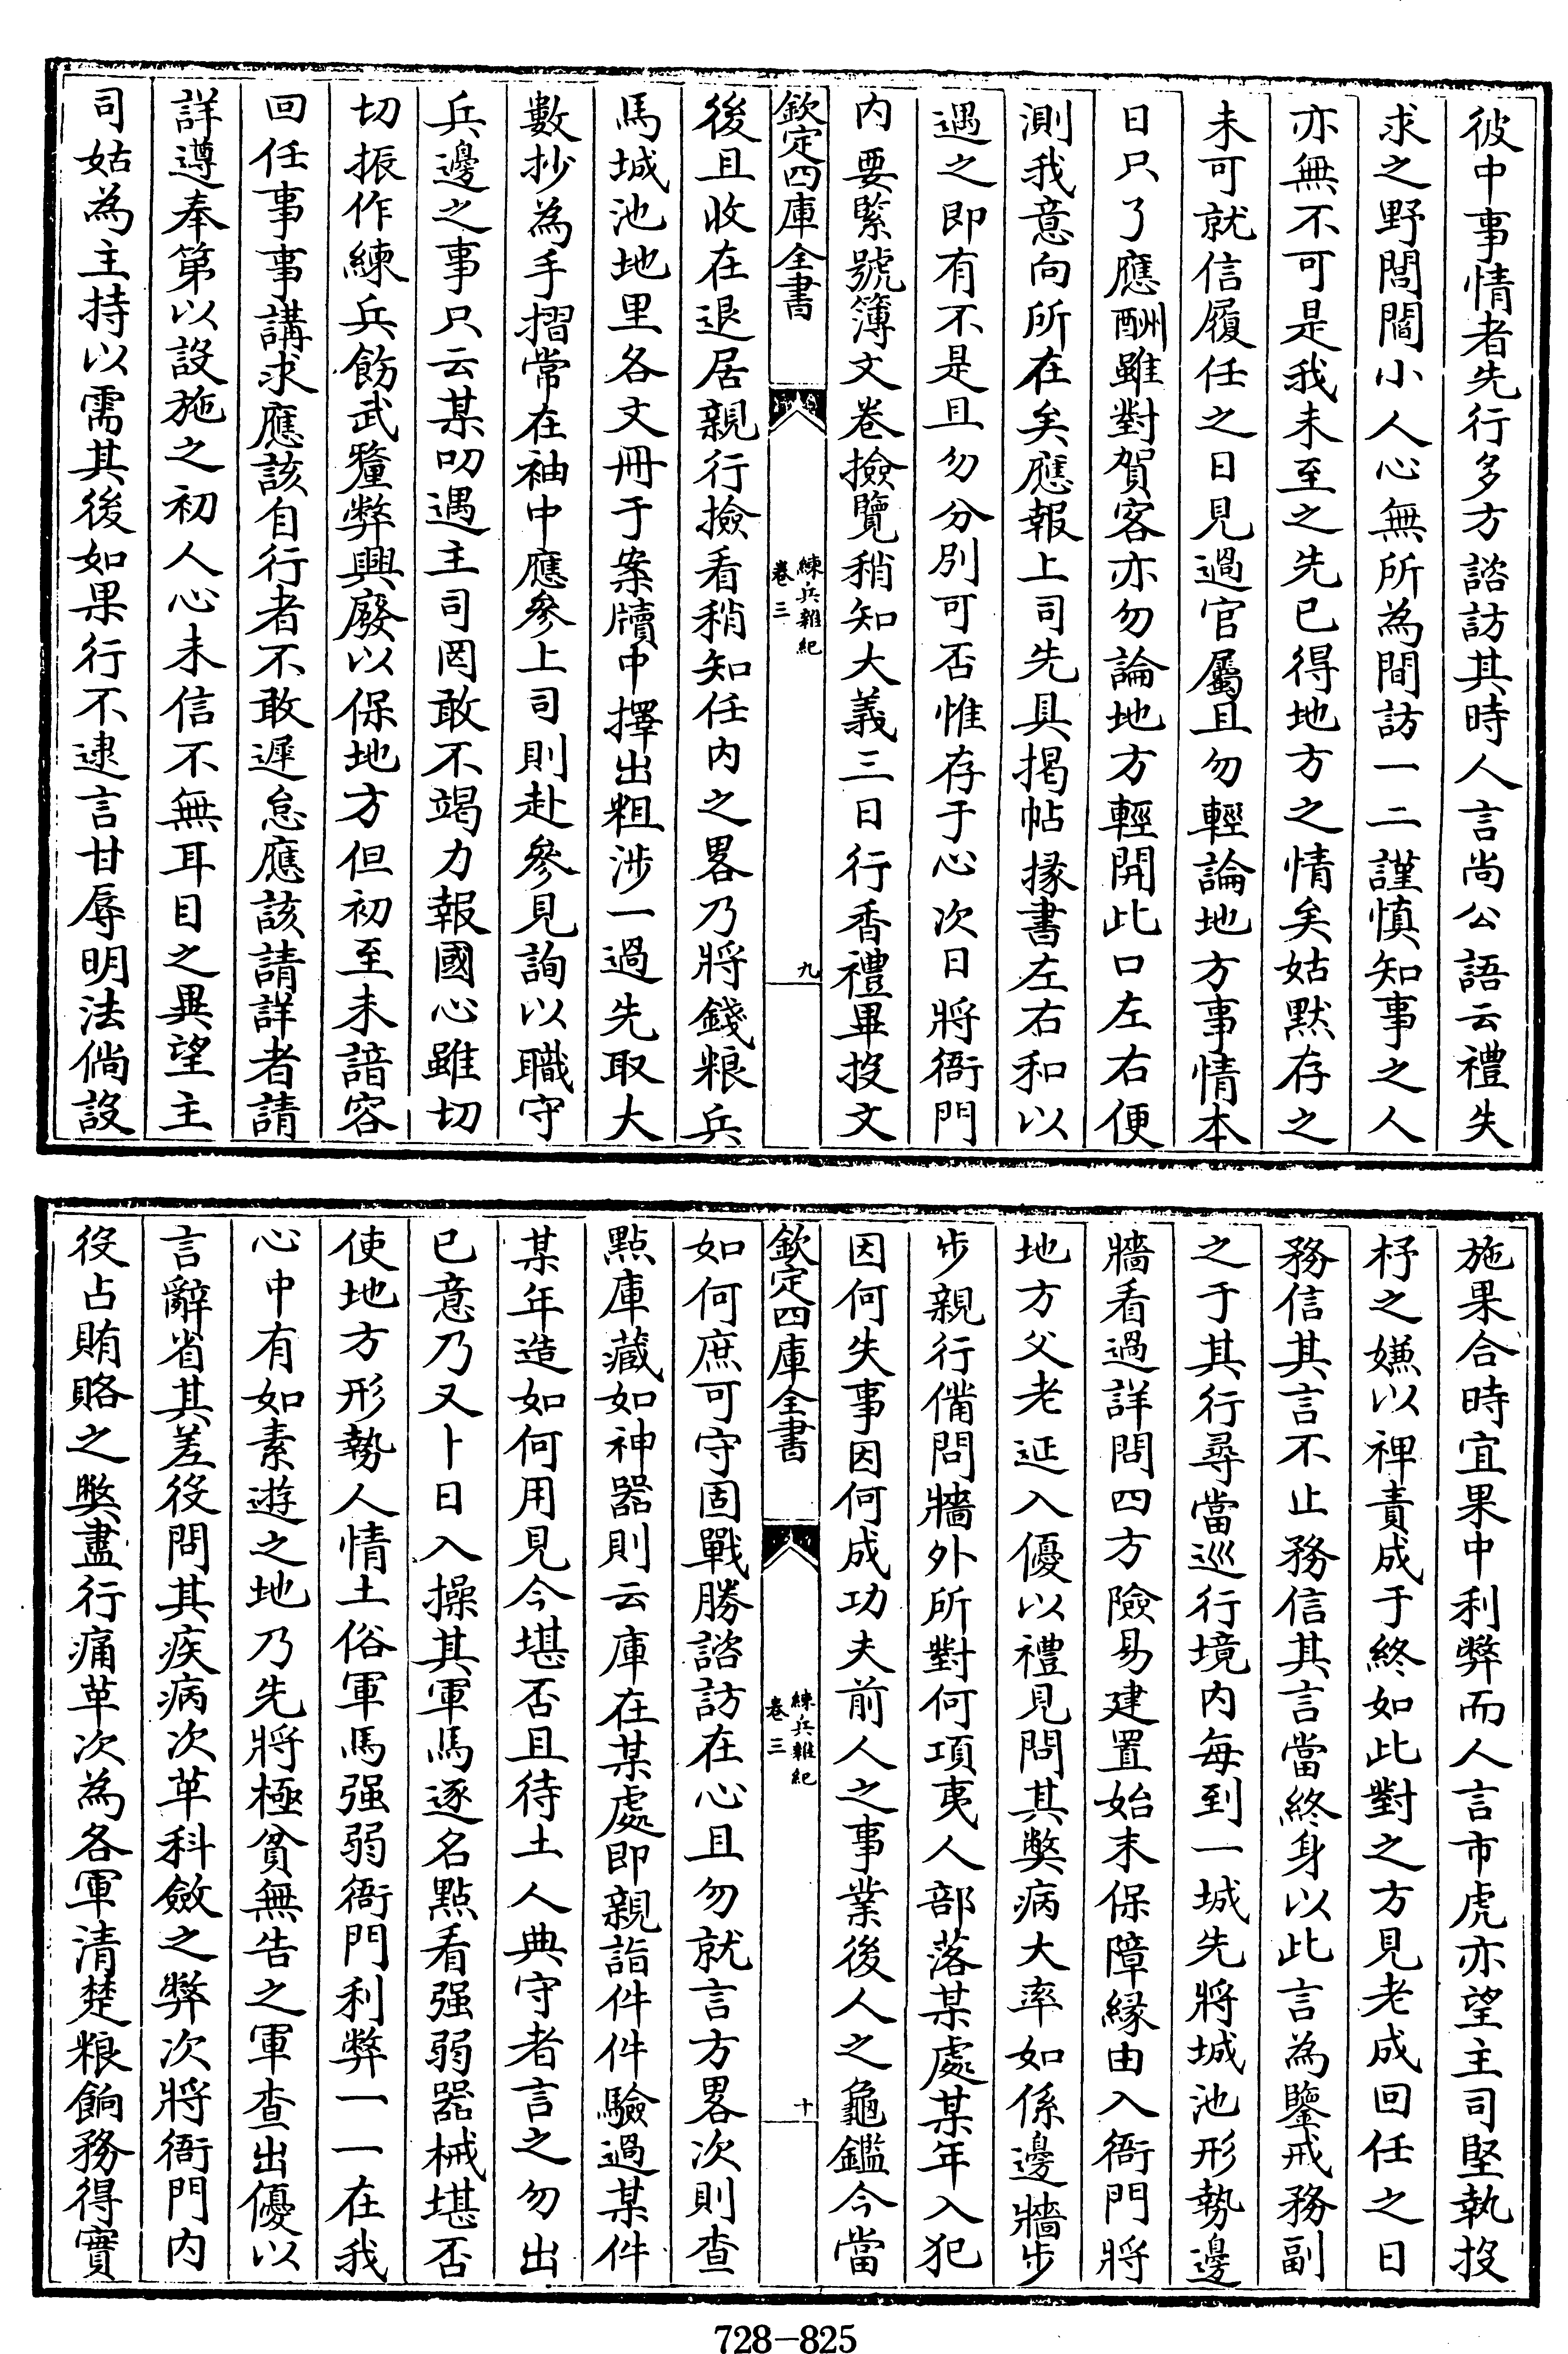 彼中事情者先行多方諮訪其時人言尚公語云禮失
求之野閭閻小人心無所為間訪一二謹慎知事之人
亦無不可是我未至之先已得地方之情矣姑黙存之
未可就信履任之日見過官屬且勿輕論地方事情本
日只了應酬雖對賀客亦勿論地方輕開此口左右便
測我意向所在矣應報上司先具揭帖掾書左右和以
遇之即有不是且勿分別可否惟存于心次日將衙門
内要緊號簿文卷撿覽稍知大義三日行香禮畢投文
欽定四庫全書
練兵雜紀
卷三
九
後且收在退居親行撿看稍知任内之畧乃將錢粮兵
馬城池地里各文冊于案牘中擇出粗涉一過先取大
數抄為手摺常在袖中應參上司則赴參見詢以職守
兵邊之事只云某叨遇主司罔敢不竭力報國心雖切
切振作練兵飭武釐弊興廢以保地方但初至未諳容
回任事事講求應該自行者不敢遲怠應該請詳者請
詳遵奉第以設施之初人心未信不無耳目之異望主
司姑為主持以需其後如果行不逮言甘辱明法倘設
施果合時宜果中利弊而人言市虎亦望主司堅執投
杼之嫌以裨責成于終如此對之方見老成回任之日
務信其言不止務信其言當終身以此言為鑒戒務副
之于其行尋當巡行境内每到一城先將城池形勢邊
牆看過詳問四方險易建置始末保障緣由入衙門將
地方父老延入優以禮見問其獘病大率如係邊牆步
步親行備問牆外所對何項夷人部落某處某年入犯
因何失事因何成功夫前人之事業後人之龜鑑今當
欽定四庫全書
練兵雜紀
卷三
十
如何庶可守固戰勝諮訪在心且勿就言方畧次則查
點庫藏如神器則云庫在某處即親詣件件驗過某件
某年造如何用見今堪否且待土人典守者言之勿出
已意乃又卜日入操其軍馬逐名點看强弱器械堪否
使地方形勢人情土俗軍馬强弱衙門利弊一一在我
心中有如素遊之地乃先將極貧無告之軍查出優以
言辭省其差役問其疾病次革科斂之弊次將衙門内
役占賄賂之獘盡行痛革次為各軍清楚粮餉務得實
728-825